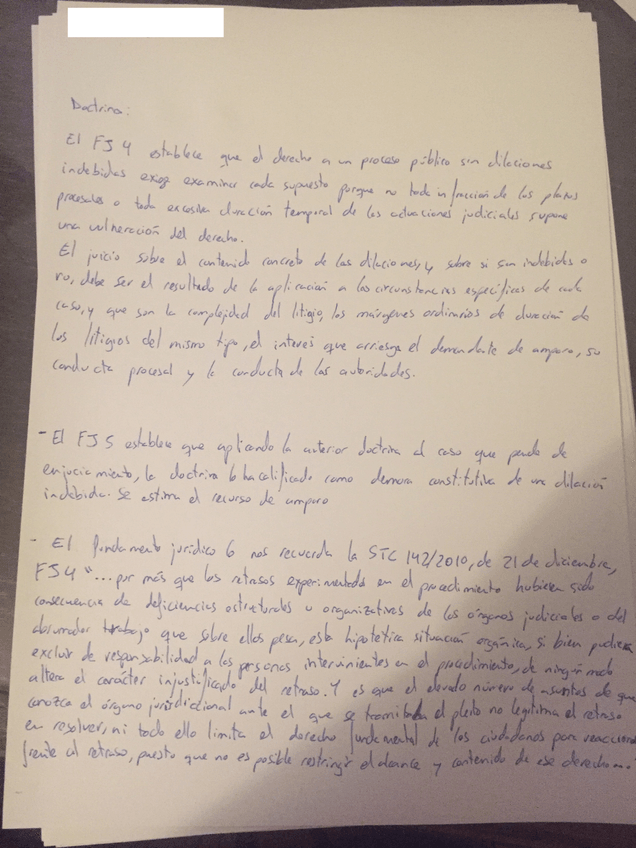 Doctrina:
El FJ 4 establece que el derecho a un proceso público sin dilaciones
indebidas exige examinar cada supuesto porque no toda infracción de los plazos
procesales o toda excesiva duración temporal de las actuaciones judiciales supone
una vulneración del derecho.
El juicio sobre el contenido concreto de las dilaciones, y sobre si son indebidas o
no, debe ser el resultado de la aplicación a las circunstancias específicas de cada
caso, y que son la complejidad del litigio, los márgenes ordinarios de duración de
los litigios del mismo tipo, el interés que arriesga el demandante de amparo, su
conducta procesal y la conducta de las autoridades.
- El FJ 5 establece que aplicando la anterior doctrina al caso que pende de
enjuciamiento, la doctrina lo ha calificado como demora constitutiva de una dilación
indebida. Se estima el recurso de amparo
- El fundamento jurídico 6 nos recuerda la STC 142/2010, de 21 de diciembre,
FJ 4 "...por más que los retrasos experimentados en el procedimiento hubiesen sido
consecuencia de deficiencias estructurales u organizativas de los órganos judiciales o del
abrumador trabajo que sobre ellos pesa, esta hipotética situación orgánica, si bien pudiera
excluir de responsabilidad a las personas intervinientes en el procedimiento, de ningún modo
altera el carácter injustificado del retraso. Y es que el elevado número de asuntos de que
conozca el órgano jurisdiccional ante el que se tramitaba el pleito no legitima el retraso
en resolver, ni todo ello limita el derecho fundamental de los ciudadanos para reaccionar
frente al retraso, puesto que no es posible restringir el alcance y contenido de ese derecho..."